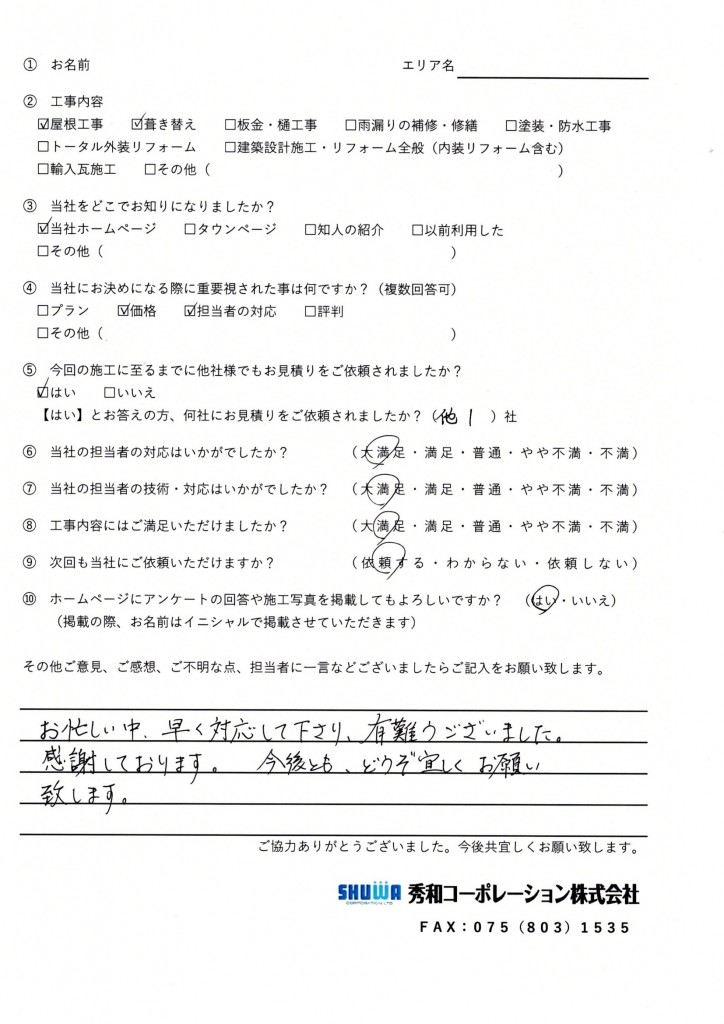 ① お名前 エリア名
② 工事内容
☑屋根工事 ☑葺き替え □板金・樋工事 □雨漏りの補修・修繕 □塗装・防水工事
□トータル外装リフォーム □建築設計施工・リフォーム全般（内装リフォーム含む）
□輸入瓦施工 □その他（ ）
③ 当社をどこでお知りになりましたか？
☑当社ホームページ □タウンページ □知人の紹介 □以前利用した
□その他（ ）
④ 当社にお決めになる際に重要視された事は何ですか？（複数回答可）
□プラン ☑価格 ☑担当者の対応 □評判
□その他（ ）
⑤ 今回の施工に至るまでに他社様でもお見積りをご依頼されましたか？
☑はい □いいえ
【はい】とお答えの方、何社にお見積りをご依頼されましたか？（他1）社
⑥ 当社の担当者の対応はいかがでしたか？ （大満足・満足・普通・やや不満・不満）
⑦ 当社の担当者の技術・対応はいかがでしたか？ （大満足・満足・普通・やや不満・不満）
⑧ 工事内容にはご満足いただけましたか？ （大満足・満足・普通・やや不満・不満）
⑨ 次回も当社にご依頼いただけますか？ （依頼する・わからない・依頼しない）
⑩ ホームページにアンケートの回答や施工写真を掲載してもよろしいですか？ （はい・いいえ）
（掲載の際、お名前はイニシャルで掲載させていただきます）
その他ご意見、ご感想、ご不明な点、担当者に一言などございましたらご記入をお願い致します。
お忙しい中、早く対応して下さり、有難うございました。
感謝しております。 今後とも、どうぞ宜しくお願い
致します。
ご協力ありがとうございました。今後共宜しくお願い致します。
SHUWA CORPORATION LTD 秀和コーポレーション株式会社
FAX：075（803）1535